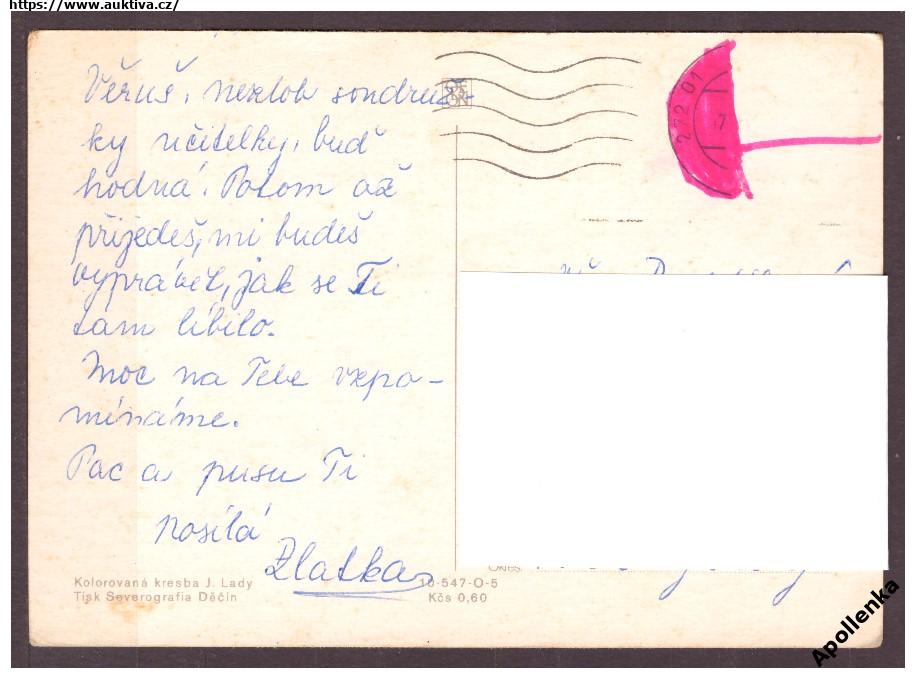 https://www.auktiva.cz/
Věruš, nezlob soudruž-
ky učitelky, buď
hodná. Potom až
přijedeš, mi budeš
vyprávět, jak se Ti
tam líbilo.
Moc na Tebe vzpo-
mínáme.
Pac a pusu Ti
posílá
Zlatka
Kolorovaná kresba J. Lady
Tisk Severografia Děčín
10-547-O-5
Kčs 0,60
272 01
7
Apollenka